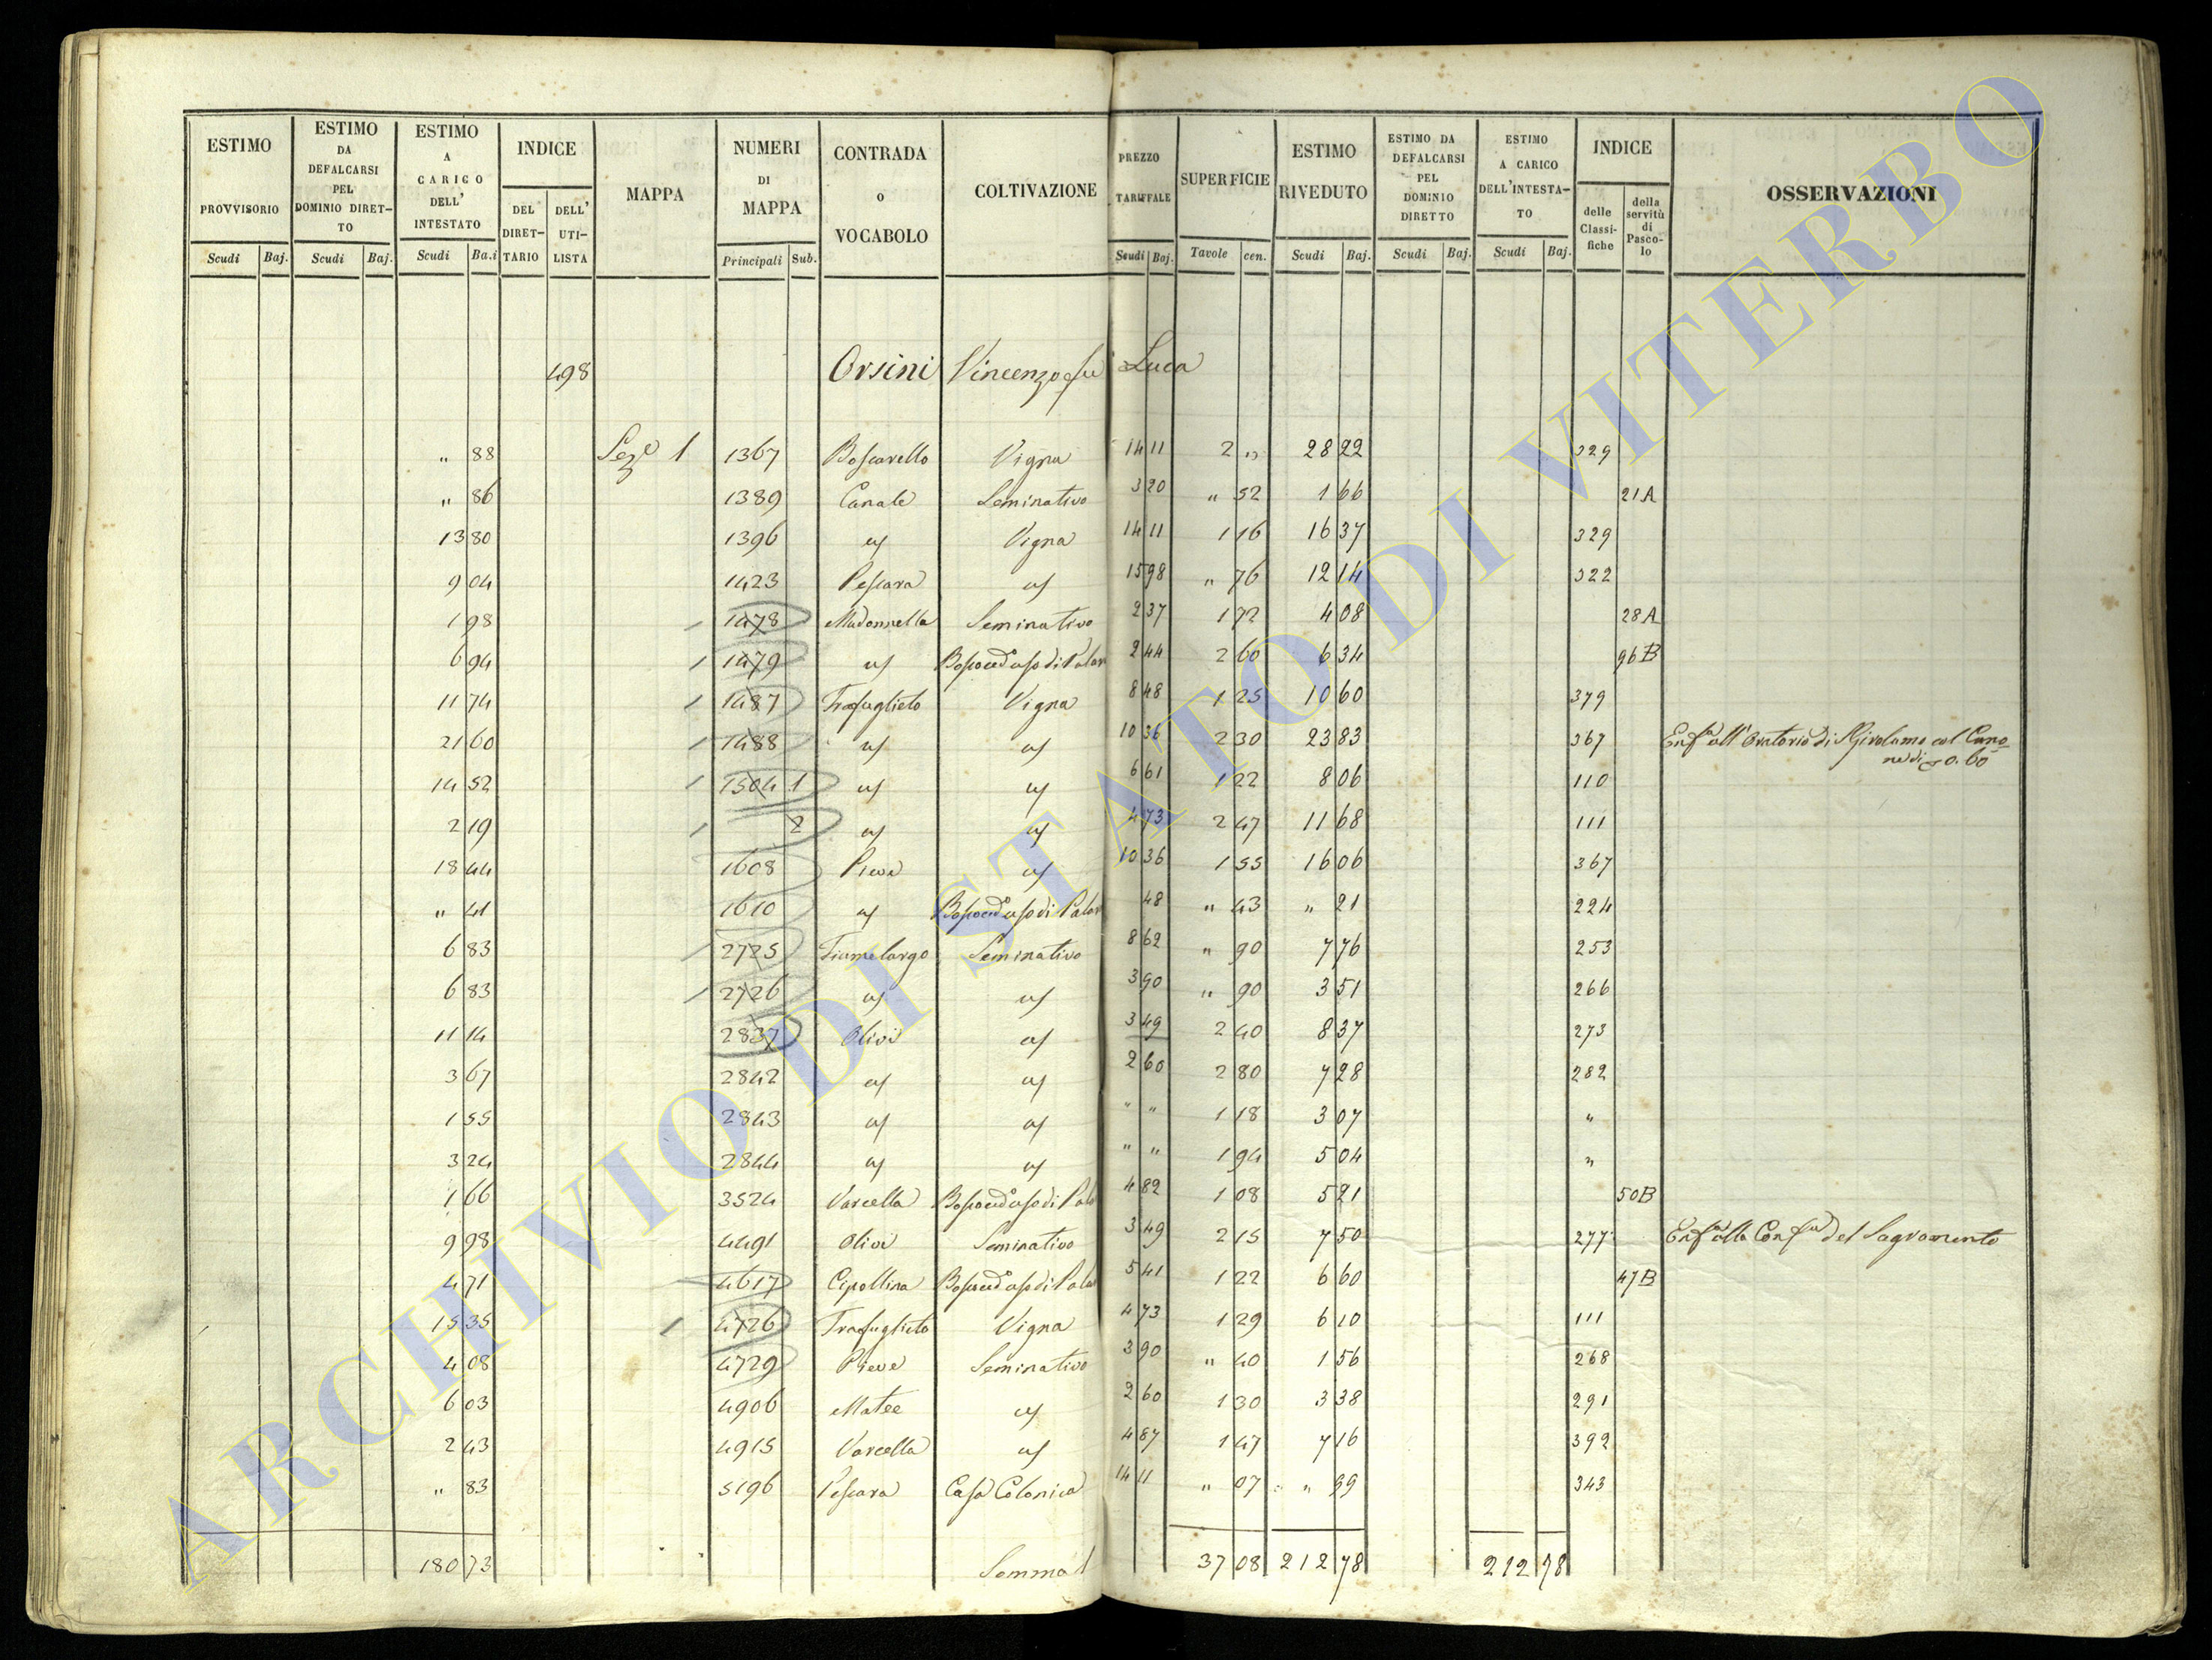 ESTIMO PROVVISORIO Scudi Baj.
ESTIMO DA DEFALCARSI PEL DOMINIO DIRET-TO Scudi Baj.
ESTIMO A CARICO DELL' INTESTATO Scudi Ba.i
INDICE DEL DIRET-TARIO DELL' UTI-LISTA
MAPPA
NUMERI DI MAPPA Principali Sub.
CONTRADA o VOCABOLO
COLTIVAZIONE
PREZZO TARIFFALE Scudi Baj.
SUPERFICIE Tavole cen.
ESTIMO RIVEDUTO Scudi Baj.
ESTIMO DA DEFALCARSI PEL DOMINIO DIRETTO Scudi Baj.
ESTIMO A CARICO DELL'INTESTA-TO Scudi Baj.
INDICE delle Classi-fiche della servitù di Pasco-lo
OSSERVAZIONI
498 Orsini Vincenzo fu Luca
" 88 Sez.e 1 1367 Boscarello Vigna 14 11 2 " 28 22 329
" 86 1389 Canale Seminativo 3 20 " 52 1 66 21A
13 80 1396 " Vigna 14 11 1 16 16 37 329
9 04 1423 Pescara " 15 98 " 76 12 14 322
1 98 1478 Madonnella Seminativo 2 37 1 72 4 08 28A
6 94 1479 " Bosco ced.o uso di Palar 2 44 2 60 6 34 96B
11 74 1487 Trafuglieto Vigna 8 48 1 25 10 60 379
21 60 1488 " " 10 36 2 30 23 83 367 Enf.a all'Oratorio di S Girolamo col Cano
ne di 0.60
14 52 1504 1 " " 6 61 1 22 8 06 110
2 19 2 " " 4 73 2 47 11 68 111
18 44 1608 Pieve " 10 36 1 55 16 06 367
" 41 1610 " Bosco ced.o uso di Palar 48 " 43 " 21 224
6 83 2725 Fiume largo Seminativo 8 62 " 90 7 76 253
6 83 2726 " " 3 90 " 90 3 51 266
11 14 2837 Olivi " 3 49 2 40 8 37 273
3 67 2842 " " 2 60 2 80 7 28 282
1 55 2843 " " " " 1 18 3 07 "
3 24 2844 " " " " 1 94 5 04 "
1 66 3524 Varcella Bosco ced.o uso di Pala 4 82 1 08 5 21 50B
9 98 4491 Olivi Seminativo 3 49 2 15 7 50 277 Enf.a alla Conf.a del Sagramento
4 71 4617 Cipollina Bosco ced.o uso di Pala 5 41 1 22 6 60 47B
15 35 4726 Trafuglieto Vigna 4 73 1 29 6 10 111
4 08 4729 Pieve Seminativo 3 90 " 40 1 56 268
6 03 4906 Matee " 2 60 1 30 3 38 291
2 43 4915 Varcella " 4 87 1 47 7 16 392
" 83 5196 Pescara Casa Colonica 14 11 " 07 " 99 343
180 73 Somma 37 08 212 78 212 78
ARCHIVIO DI STATO DI VITERBO